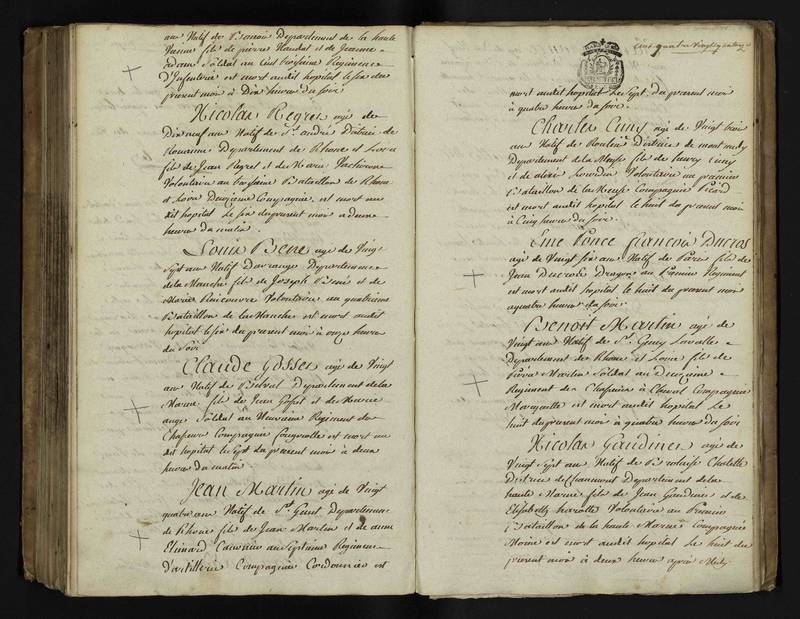 ans Natif de Département de la haute
Vienne fils de pierre Naudat et de Jeanne
Soldat au Cent troisieme Regiment
D'Infanterie est mort audit hopital le six du
present mois à Dix heures du soir
Nicolas Regret agé de
Dixneuf ans Natif de St. andré District de
Rouanne Departement de Rhone et Loire
fils de Jean Regret et de Marie
Volontaire au troisieme Bataillon de Rhone
et Loire Deuxieme Compagnie est mort au
dit hopital le six du present mois à deux
heures du matin
Louis Bene agé de Vingt
Sept ans Natif Davranges Departement
de la Manche fils de Joseph Bené et de
Marie Volontaire au quatrieme
Bataillon de la Manche est mort audit
hopital le six du present mois à onze heures
du Soir
Claude Gosset agé de Vingt
ans Natif de Departement de la
Marne fils de Jean Gosset et de
ange Soldat au Neuvieme Regiment de
Chasseurs Compagnie est mort au
dit hopital le Sept du present mois à deux
heures du matin
Jean Martin agé de Vingt
quatre ans Natif de St. Departement
de Rhone fils de Jean Martin et de anne
Canonier au Septieme Regiment
D'artillerie Compagnie Cordonnier est
cent quatre Vingt
mort audit hopital le Sept du present mois
à quatre heures du soir
Charles Cuny agé de Vingt trois
ans Natif de District de montmedy
Departement de la Meuse fils de henry Cuny
et de Volontaire au premier
Bataillon de la Meuse Compagnie Picard
est mort audit hopital le huit du present mois
à Cinq heures du soir
Eme Ponce François Ducros
agé de Vingt Six ans Natif de Paris fils de
Jean Ducros Dragon au Premier Regiment
est mort audit hopital le huit du present mois
à quatre heures du soir
Benoit Martin agé de
Vingt ans Natif de St. Lavalle
Departement de Rhone et Loire fils de
Pierre Martin Soldat au Deuxieme
Regiment de Chasseurs à Cheval Compagnie
est mort audit hopital le
huit du present mois à quatre heures du soir
Nicolas Gaudinet agé de
Vingt Sept ans Natif de
District de Chaumont Departement de la
haute Marne fils de Jean Gaudinet et de
Elisabeth Volontaire au Premier
Bataillon de la haute Marne Compagnie
est mort audit hopital le huit du
present mois à deux heures après Midy